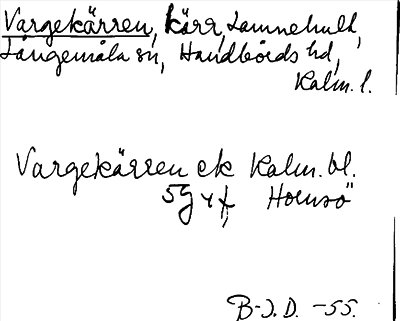 Vargekärren, kärr, Lamnehult,
Långemåla sn, Handbörds hd,
Kalm. l.
Vargekärren ek Kalm. bl.
5g y f, Hornsö
B-J. D. -55.